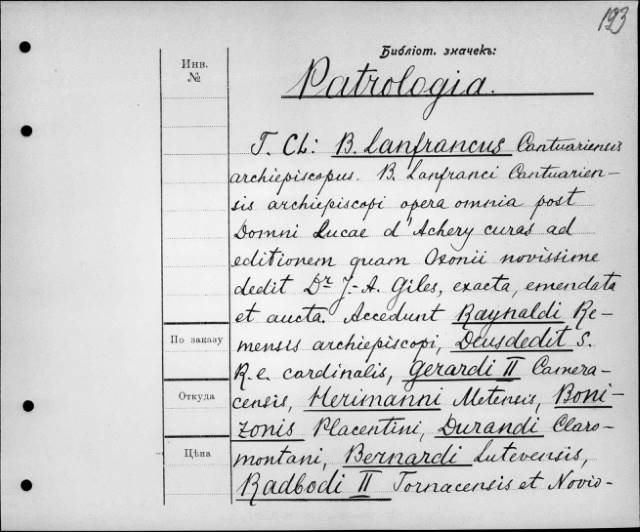 193
Библіот. значекъ:
Инв.
№
Patrologia.
T. CL: B. Lanfrancus Cantuariensis
archiepiscopus. B. Lanfranci Cantuarien-
sis archiepiscopi opera omnia post
Domni Lucae d'Achery curas ad
editionem quam Oxonii novissime
dedit Dr J.-A. Giles, exacta, emendata
et aucta. Accedunt Raynaldi Re-
mensis archiepiscopi, Deusdedit S.
R. e. cardinalis, Gerardi II Camera-
censis, Herimanni Metensis, Boni-
zonis Placentini, Durandi Claro-
montani, Bernardi Lutevensis,
Radbodi II Tornacensis et Novio-
По заказу
Откуда
Цѣна